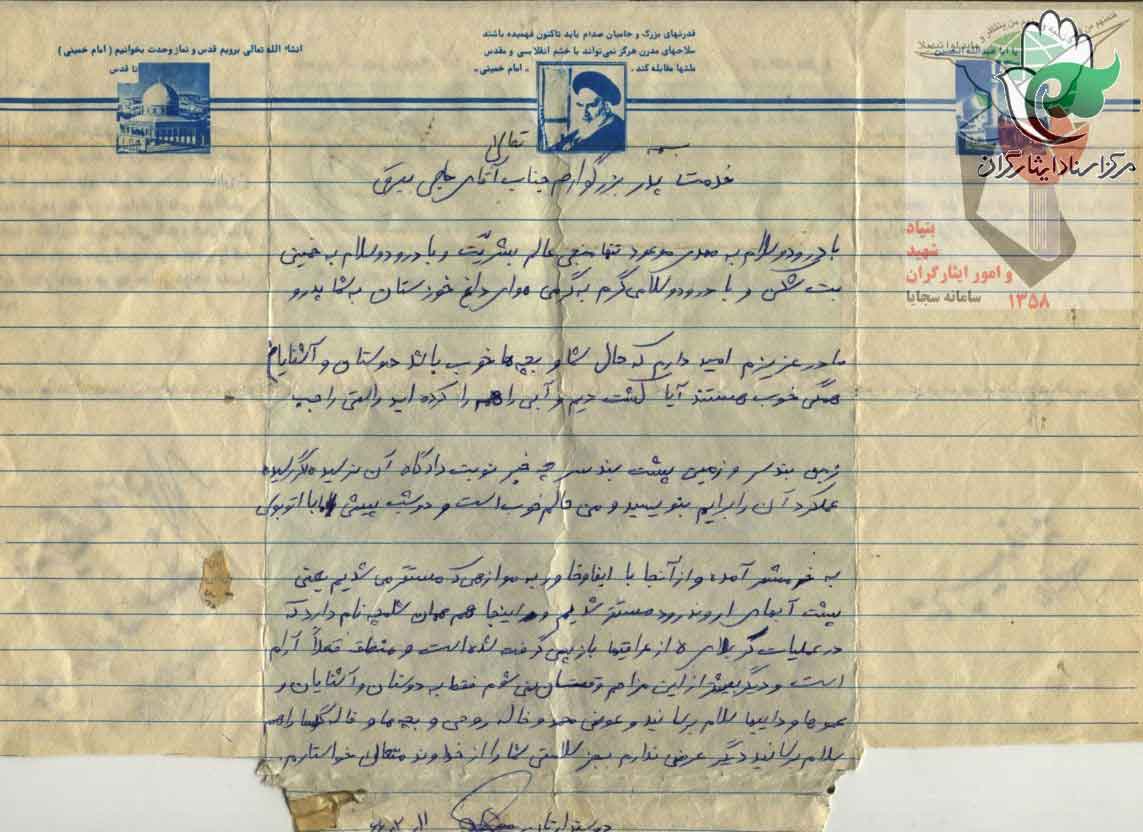 قدرتهای بزرگ و حامیان صدام باید تاکنون فهمیده باشند
سلاحهای مدرن هرگز نمی‌تواند با خشم انقلابی و مقدس
ملتها مقابله کند. «امام خمینی»
انشاء الله تعالی برویم قدس و نماز وحدت بخوانیم (امام خمینی)
تا قدس
مرکز اسناد ایثارگران
بنیاد
شهید
و امور ایثارگران
سامانه سجایا
۱۳۵۸
بسمه تعالی
خدمت پدر بزرگوارم جناب آقای حاجی
با درود و سلام به مهدی موعود تنها منجی عالم بشریّت و با درود و سلام به خمینی
بت شکن و با درود و سلامی گرم به گرمی هوای داغ خوزستان به شما پدر و
مادر عزیزم امید دارم که حال شما و بچه ها خوب باشد دوستان و آشنایان
همگی خوب هستند آیا کشت دیم و آبی را همه را کرده اید راستی راجب
زمین بندسر و زمین پشت بندسر چه خبر نوبت دادگاه آن نرسیده اگر رسیده
عملکرد آن را برایم بنویسید و من حالم خوب است و دو شب پیش با اتوبوس
به خرمشهر آمده و از آنجا با ایفا و خاور به مواضعی که مستقر می شدیم یعنی
پشت آبهای اروند رود مستقر شدیم و در اینجا هم همان شلمچه نام دارد که
در عملیات کربلای ۵ از عراقیها بازپس گرفته شده است و منطقه فعلاً آرام
است و دیگر بیشتر از این مزاحم وقتتان نمی شوم فقط به دوستان و آشنایان و
عموها و داییها سلام برسانید و عوض حمد و خاله روحی و بچه ها و خاله را هم
سلام برسانید دیگر عرضی ندارم بجز سلامتی شما را از خداوند متعال خواستارم.
دوستدارتان